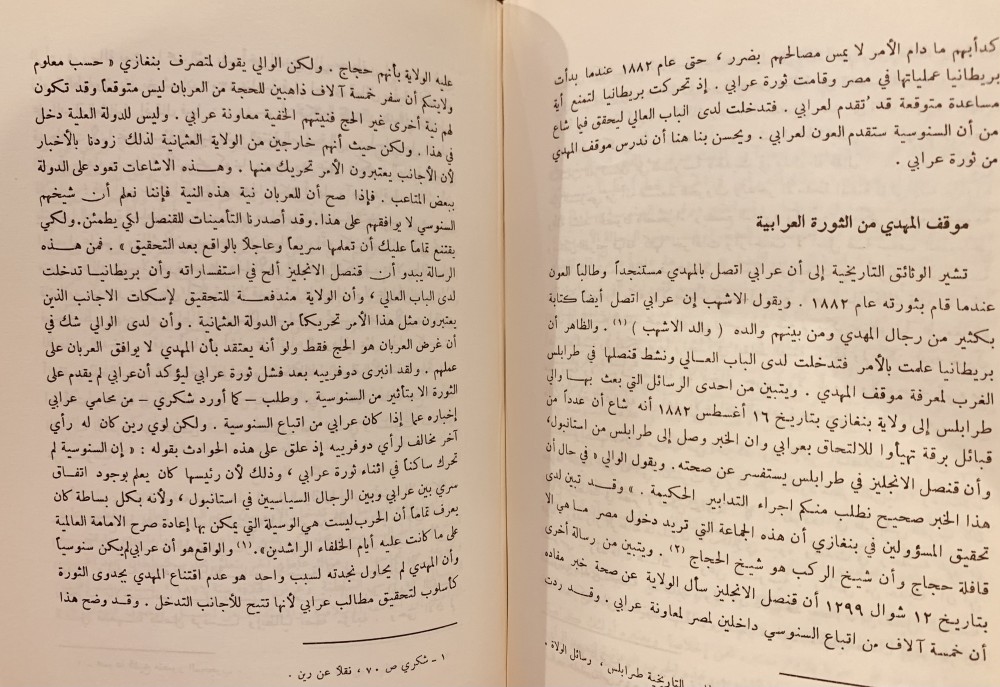 كدأبهم ما دام الأمر لا يمس مصالحهم بضرر ، حتى عام ١٨٨٢ عندما بدأت
بريطانيا عملياتها في مصر وقامت ثورة عرابي . إذ تحركت بريطانيا لتمنع أية
مساعدة متوقعة قد تقدم لعرابي . فتدخلت لدى الباب العالي ليحقق فيما شاع
من أن السنوسية ستقدم العون لعرابي . ويحسن بنا هنا أن ندرس موقف المهدي
من ثورة عرابي .
موقف المهدي من الثورة العرابية
تشير الوثائق التاريخية إلى أن عرابي اتصل بالمهدي مستنجداً وطالباً العون
عندما قام بثورته عام ١٨٨٢ . ويقول الاشهب إن عرابي اتصل أيضاً كتابة
بكثير من رجال المهدي ومن بينهم والده ( والد الاشهب ) (١) . والظاهر أن
بريطانيا علمت بالأمر فتدخلت لدى الباب العالي ونشط قنصلها في طرابلس
الغرب لمعرفة موقف المهدي . ويتبين من احدى الرسائل التي بعث بها والي
طرابلس إلى ولاية بنغازي بتاريخ ١٦ أغسطس ١٨٨٢ أنه شاع أن عدداً من
قبائل برقة تهيأوا للالتحاق بعرابي وان الخبر وصل إلى طرابلس من استانبول،
وأن قنصل الانجليز في طرابلس يستفسر عن صحته . ويقول الوالي « في حال أن
هذا الخبر صحيح نطلب منكم اجراء التدابير الحكيمة . » وقد تبين لدى
تحقيق المسؤولين في بنغازي أن هذه الجماعة التي تريد دخول مصر ما هي الا
قافلة حجاج وأن شيخ الركب هو شيخ الحجاج (٢) . ويتبين من رسالة أخرى
بتاريخ ١٢ شوال ١٢٩٩ أن قنصل الانجليز سأل الولاية عن صحة خبر مفاده
أن خمسة آلاف من اتباع السنوسي داخلين لمصر لمعاونة عرابي . وقد ردت
التاريخية طرابلس ، رسائل الولاة .
عليه الولاية بأنهم حجاج . ولكن الوالي يقول لمتصرف بنغازي « حسب معلوم
ولايتكم أن سفر خمسة آلاف ذاهبين للحجة من العربان ليس متوقعاً وقد تكون
لهم نية أخرى غير الحج فنيتهم الخفية معاونة عرابي . وليس للدولة العلية دخل
في هذا . ولكن حيث أنهم خارجين من الولاية العثمانية لذلك زودنا بالأخبار
لأن الأجانب يعتبرون الأمر تحريك منها . وهذه الاشاعات تعود على الدولة
ببعض المتاعب . فإذا صح أن للعربان نية هذه النية فإننا نعلم أن شيخهم
السنوسي لا يوافقهم على هذا. وقد أصدرنا التأمينات للقنصل لكي يطمئن. ولكي
يقتنع تماماً عليك أن تعلمها سريعاً وعاجلاً بالواقع بعد التحقيق » . فمن هذه
الرسالة يبدو أن قنصل الانجليز ألح في استفساراته وأن بريطانيا تدخلت
لدى الباب العالي ، وأن الولاية مندفعة للتحقيق لإسكات الاجانب الذين
يعتبرون مثل هذا الأمر تحريكاً من الدولة العثمانية . وأن لدى الوالي شك في
أن غرض العربان هو الحج فقط ولو أنه يعتقد بأن المهدي لا يوافق العربان على
عملهم . ولقد انبرى دوفرييه بعد فشل ثورة عرابي ليؤكد أن عرابي لم يقدم على
الثورة الا بتأثير من السنوسية . وطلب – كما أورد شكري – من محامي عرابي
إخباره عما إذا كان عرابي من اتباع السنوسية . ولكن لوي رين كان له رأي
آخر مخالف لرأي دوفرييه إذ علق على هذه الحوادث بقوله : « إن السنوسية لم
تحرك ساكناً في اثناء ثورة عرابي ، وذلك لأن رئيسها كان يعلم بوجود اتفاق
سري بين عرابي وبين الرجال السياسيين في استانبول ، ولأنه بكل بساطة كان
يعرف تماماً أن الحرب ليست هي الوسيلة التي يمكن بها إعادة صرح الامامة العالمية
على ما كانت عليه أيام الخلفاء الراشدين». (١) والواقع هو أن عرابي لم يكن سنوسياً
وأن المهدي لم يحاول نجدته لسبب واحد هو عدم اقتناع المهدي بجدوى الثورة
كأسلوب لتحقيق مطالب عرابي لأنها تتيح للأجانب التدخل . وقد وضح هذا
١ - شكري ص ٧٠ ، نقلا عن رين .